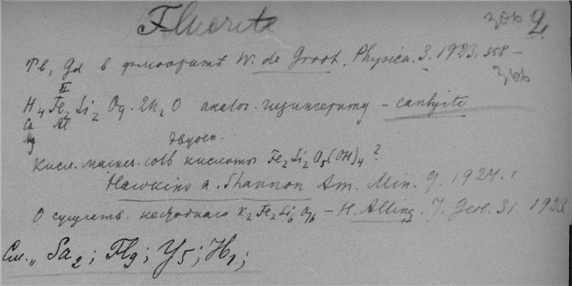 Fluorite
306 2
Tb, Gd в флюорите W. de Groot. Physica. 3. 1923. 358 –
366
III
H₄Fe₂Si₂O₉·2H₂O аналог. гизингериту – canbyite
Ca Al
Mg двуосн.
Кисл. магнез. соль кислоты Fe₂Si₂O₅(OH)₄?
Hawkins a. Shannon Am. Min. 9. 1924.
О существ. K₂Fe₂Si₆O₁₆ – H. Alling. J. Geol. 31. 1923
См. Sa₂; Flg; Y5; H1;